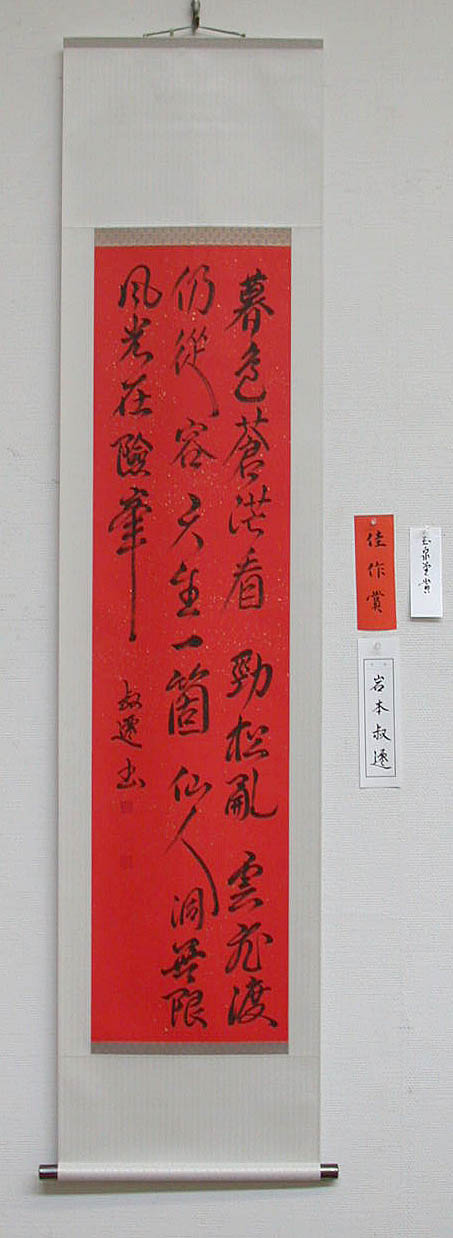 暮色蒼茫看勁松亂雲飛渡
仍從容天生一箇仙人洞無限
風光在險峯
叔遷書
佳作賞
玉泉堂賞
岩本叔遷